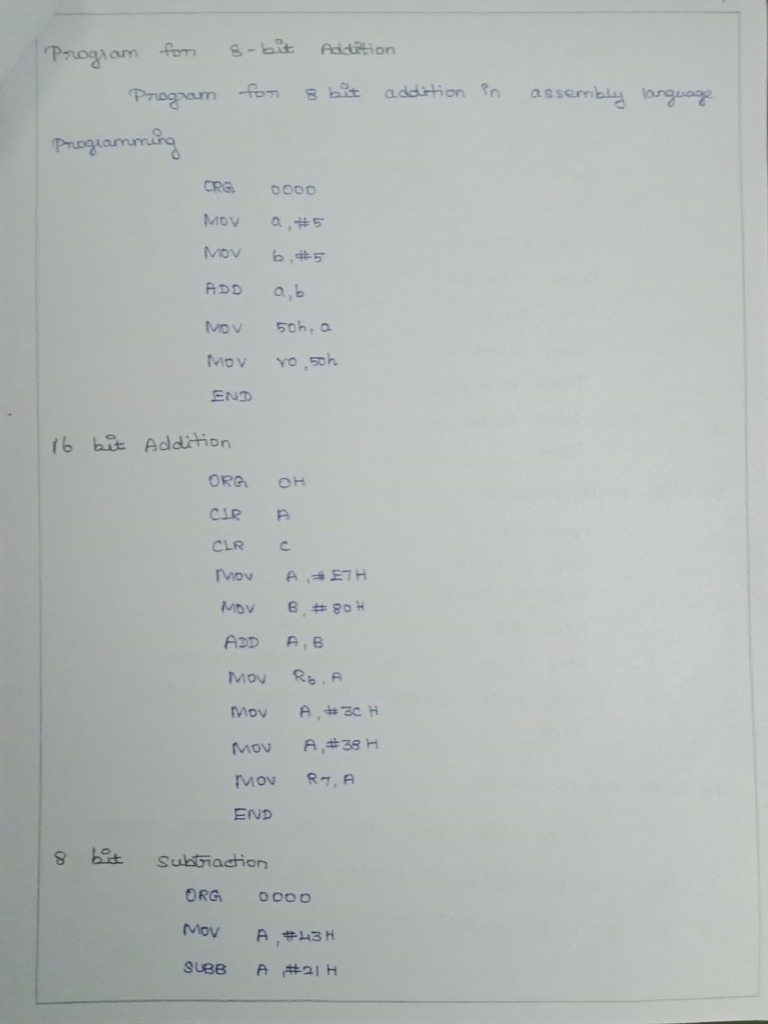 Program for 8-bit Addition
Program for 8 bit addition in assembly language
Programming
ORG 0000
MOV a,#5
MOV b,#5
ADD a,b
MOV 50h, a
MOV r0,50h
END
16 bit Addition
ORG 0H
CLR A
CLR C
MOV A,#E7H
MOV B,#80H
ADD A,B
MOV R6,A
MOV A,#3CH
MOV A,#38H
MOV R7,A
END
8 bit Subtraction
ORG 0000
MOV A,#43H
SUBB A,#21H